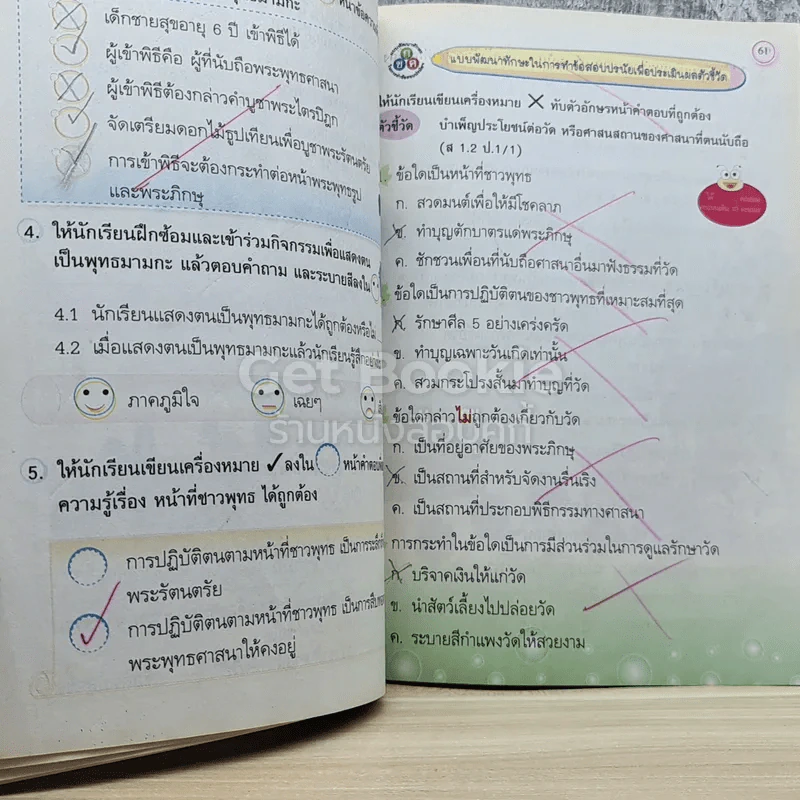 หน้าข้อความ
เด็กชายสุขอายุ 6 ปี เข้าพิธีได้
ผู้เข้าพิธีคือ ผู้ที่นับถือพระพุทธศาสนา
ผู้เข้าพิธีต้องกล่าวคำบูชาพระไตรปิฎก
จัดเตรียมดอกไม้ธูปเทียนเพื่อบูชาพระรัตนตรัย
การเข้าพิธีจะต้องกระทำต่อหน้าพระพุทธรูป
และพระภิกษุ
4. ให้นักเรียนฝึกซ้อมและเข้าร่วมกิจกรรมเพื่อแสดงตน
เป็นพุทธมามกะ แล้วตอบคำถาม และระบายสีลงใน
4.1 นักเรียนแสดงตนเป็นพุทธมามกะได้ถูกต้องหรือไม่
4.2 เมื่อแสดงตนเป็นพุทธมามกะแล้วนักเรียนรู้สึก
ภาคภูมิใจ เฉยๆ
5. ให้นักเรียนเขียนเครื่องหมาย ✓ ลงใน หน้าคำตอบ
ความรู้เรื่อง หน้าที่ชาวพุทธ ได้ถูกต้อง
การปฏิบัติตนตามหน้าที่ชาวพุทธ เป็นการ
พระรัตนตรัย
การปฏิบัติตนตามหน้าที่ชาวพุทธ เป็นการ
พระพุทธศาสนาให้คงอยู่
61
แบบพัฒนาทักษะในการทำข้อสอบปรนัยเพื่อประเมินผลตัวชี้วัด
ให้นักเรียนเขียนเครื่องหมาย ✗ ทับตัวอักษรหน้าคำตอบที่ถูกต้อง
ตัวชี้วัด บำเพ็ญประโยชน์ต่อวัด หรือศาสนสถานของศาสนาที่ตนนับถือ
(ส 1.2 ป.1/1)
ข้อใดเป็นหน้าที่ชาวพุทธ
ก. สวดมนต์เพื่อให้มีโชคลาภ
ข. ทำบุญตักบาตรแด่พระภิกษุ
ค. ชักชวนเพื่อนที่นับถือศาสนาอื่นมาฟังธรรมที่วัด
ข้อใดเป็นการปฏิบัติตนของชาวพุทธที่เหมาะสมที่สุด
ก. รักษาศีล 5 อย่างเคร่งครัด
ข. ทำบุญเฉพาะวันเกิดเท่านั้น
ค. สวมกระโปรงสั้นมาทำบุญที่วัด
ข้อใดกล่าวไม่ถูกต้องเกี่ยวกับวัด
ก. เป็นที่อยู่อาศัยของพระภิกษุ
ข. เป็นสถานที่สำหรับจัดงานรื่นเริง
ค. เป็นสถานที่ประกอบพิธีกรรมทางศาสนา
การกระทำในข้อใดเป็นการมีส่วนร่วมในการดูแลรักษาวัด
ก. บริจาคเงินให้แก่วัด
ข. นำสัตว์เลี้ยงไปปล่อยวัด
ค. ระบายสีกำแพงวัดให้สวยงาม
Get Bookie
ร้านหนังสือมือสอง